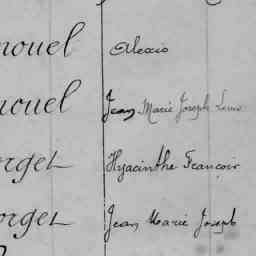 nouel Alexis
nouel Jean Marie Joseph Louis
orget Hyacinthe François
orget Jean Marie Joseph